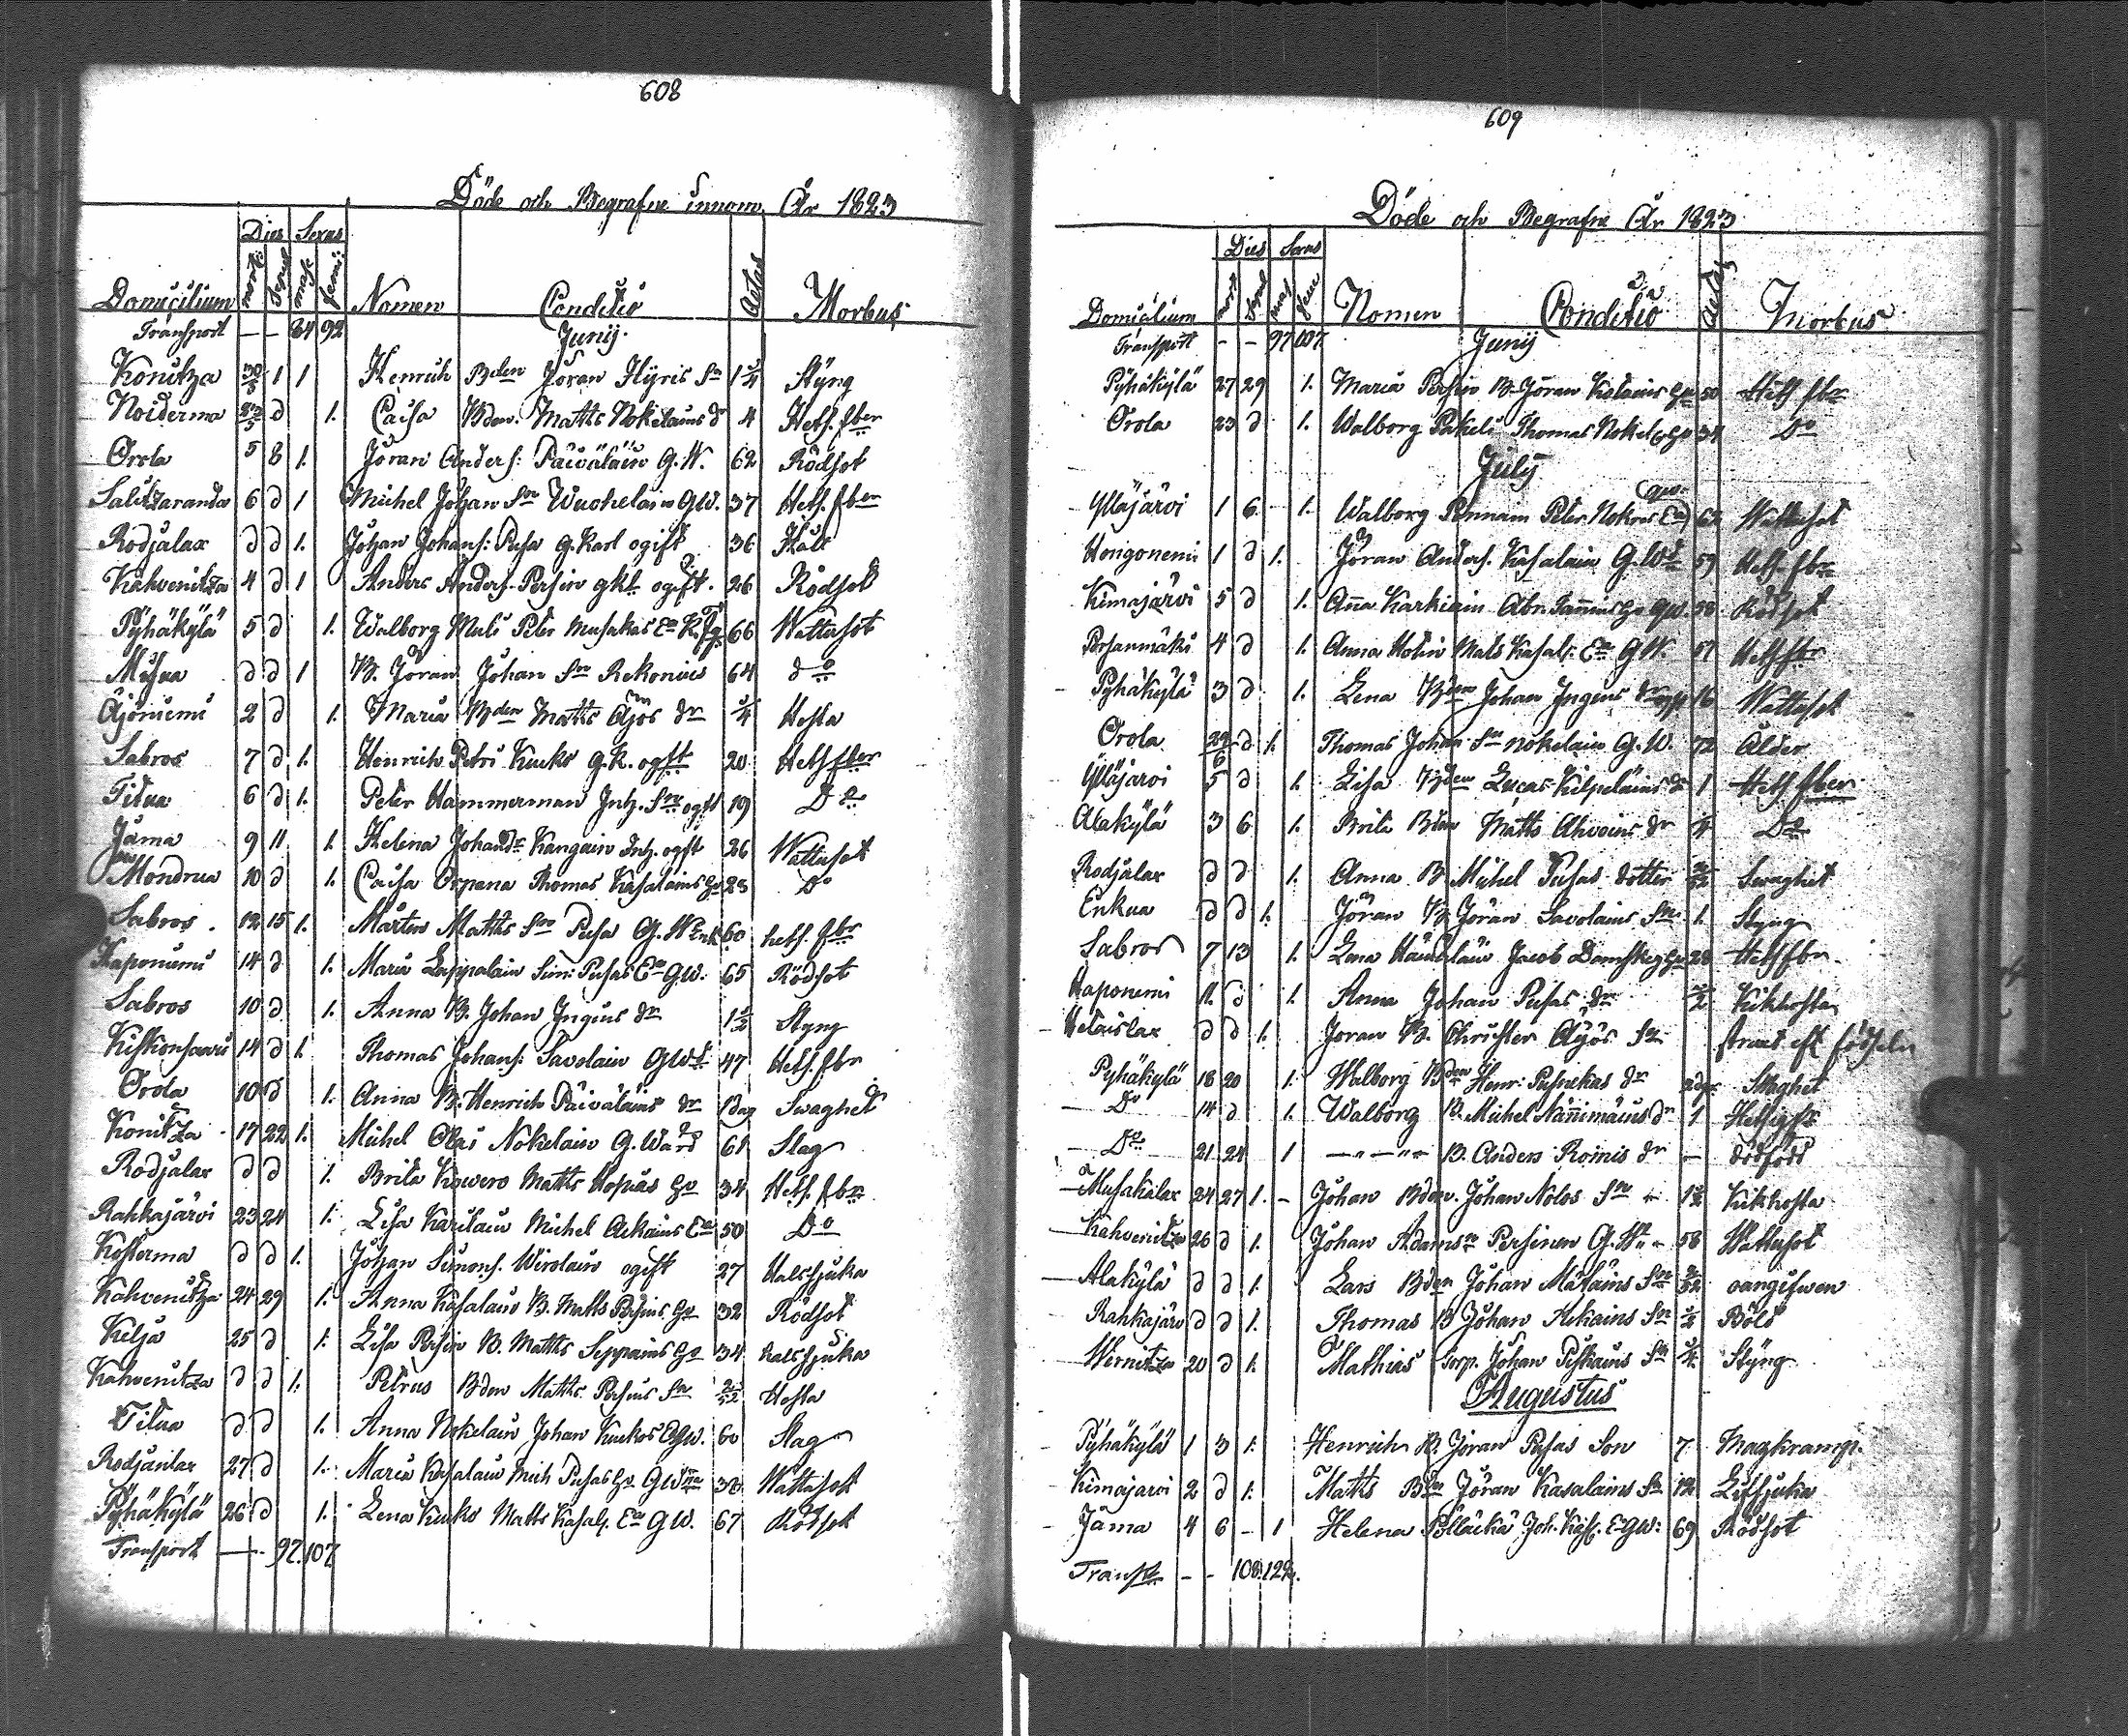 608
Döde och Begrafne innom År 1823
Dies Sexus
Domicilium mort: Sepul masc fem: Nomen Conditio Aetas Morbus
Transport — — 84 92 Junij
Konitza 30/5 1 1 Henrich Bden Jöran Hyris Sn 1 3/4 Styng
Noiderma d 1. Caisa Bden. Matts Nokelains dr 4 Hets. fber
Orola 5 8 1. Jöran Anders: Päiväläin G.W. 62 Rödsot
Salitzaranda 6 d 1 Michel Johan Sn Wuohelain GW. 37 Hets. fber
Rodjalax d d 1. Johan Johans: Pusa g. Karl ogift 36 Håll
Kahvenitza 4 d 1 Anders Anders. Persin gkl ogift. 26 Rödsot
Pyhäkylä 5 d 1. Walborg Muli Peter Musakas Ea 66 Wattusot
Musua d d 1 B. Jöran Johan Sn Rekonius 64 do
Äjöniemi 2 d 1. Maria Bden Matts Äjös dr 1/4 Hosta
Sabros 7 d 1. Henrich Petri Kuuks g.K. ogift 20 Hetsfber
Titua 6 d 1. Peter Hammerman Inh. Sn ogft 19 Do
Jama 9 11 1. Helena Johansdr Kangain Inh. ogft 26 Wattusot
Mondrua 10 d 1. Caisa Orpana Thomas Kasalains Hu 23 Do
Sabros. 12 15 1. Mårten Matts Sn Pusa G.W Enkl 60 hets. fbr
Haponiemi 14 d 1. Maria Lappalain Sim: Pusas Ea GW. 65 Rödsot
Sabros 10 d 1. Anna B. Johan Ingius dr 1 1/2 Styng
Kiskonsaari 14 d 1. Thomas Johans: Savolain GWd 47 Hets. fbr
Orola 10 d 1. Anna B. Henrich Päiväläins dr 1 dag Swaghet
Konitza 17 22 1. Michel Nokelain G. Wärd 61 Slag
Rodjalax d d 1. Brita Kowero Matts Hopias Hu 34 Hets. fbr
Rahkajärvi 23 24 1. Lisa Karilain Michel Aikains Ea 50 Do
Kosterma d d 1. Johan Simons. Wirolain ogift 27 Halssjuka
Kahvenitza 24 29 1. Anna Kasalain B. Matts Persins Hu 32 Rödsot
Kelja 25 d 1. Lisa Persin B. Matts Seppains Hu 34 halssjuka
Kahvenitza d d 1. Petrus Bden Matts Persins Sn 2/52 Hosta
Titua d d 1. Anna Nokelain Johan Kuukos EGW. 60 Slag
Rodjanlax 27 d 1. Maria Kasalain Mich Pusas Hu GWna 38 Wattusot
Pyhäkylä 26 d 1. Lena Kuuks Matts Kasals. Ea GW. 67 Rödsot
Transport — — 97. 107.
609
Döde och Begrafne År 1823
Dies Sexus
Domicilium mort Sepul mas fem Nomen Conditio Aetas Morbus
Transport - - 97 107. Junij
Pyhäkylä 27 29 1. Maria Persin B. Jöran Kolains Hu 50 Hets fbr
Orola 23 d 1. Walborg Pukeli Thomas Nokel. Hu 34 Do
Julij
Yläjärvi 1 6 1. Walborg Pennain Peter Nokns Ea GW. 62 Wattusot
Hongonemi 1 d 1. Jöran Anders. Kasalain G.Wd 59 Hets. fbr
Kimajärvi 5 d 1. Anna Karkiain Abr. Tannius Hu GW. 58 Rödsot
Porsanmäki 4 d 1. Anna Hotin Mats Kasals. Ea GW. 57 Hetsfbr
Pyhäkylä 3 d 1. Lena Bden Johan Ingins dr ogft 16 Wattusot
Orola 29/6 d 1. Thomas Johan Sn Nokelain G.W. 72 Ålder
Yläjärvi 5 d 1. Lisa Bden Lucas Kilpeläins dr 1 Hets fber
Alakylä 3 6 1. Brita Bden Matts Ahvains dr 4 Do
Rodjalax d d 1. Anna B. Michel Pusas dotter Swaghet
Enkua d d 1. Jöran B. Jöran Savolains Sn. 1. Styng
Sabros 7 13 1. Lena Jacob Damskeg Hu 28 Hetsfbr
Haponemi 11. d 1. Anna Johan Pusas dr 1/2 Kikhosta
Hetaislax d d 1. Joran B. Christer Äyös Sn strax eft födseln
Pyhäkylä 18 20 1. Walborg Bden Henr: Pusnekas dr 2 dgr Swaghet
Do 14 d 1. Walborg B. Michel Nännimäins dr 1 Hetsgfbr
Do 21 24 1 — „ — „ — B. Anders Roinis dr — dödfödd
Musakalax 24 27 1. - Johan Bden. Johan Nolos Sn 1 1/2 Kikhosta
Kahvenitza 26 d 1. Johan Adamsn Persinen G.W. 58 Wattusot
Alakylä d d 1. Lars Bden Johan Mätäins Sn oangifwen
Rahkajärv d d 1. Thomas B Johan Aikains Sn 1/2 Böld
Wernitza 20 d 1. Mathias Torp. Johan Piskains Sn 1/4 Styng
Augustus
Pyhäkylä 1 3 1. Henrich B. Jöran Pusas Son 7 Magkramp.
Kimajarvi 2 d 1. Matts Bn Jöran Kasalains Sn 12 Lefsjuka
Jama 4 6 - 1 Helena Pölläckä Joh. Kass. E.GW: 69 Rödsot
Transp - - 108. 122.